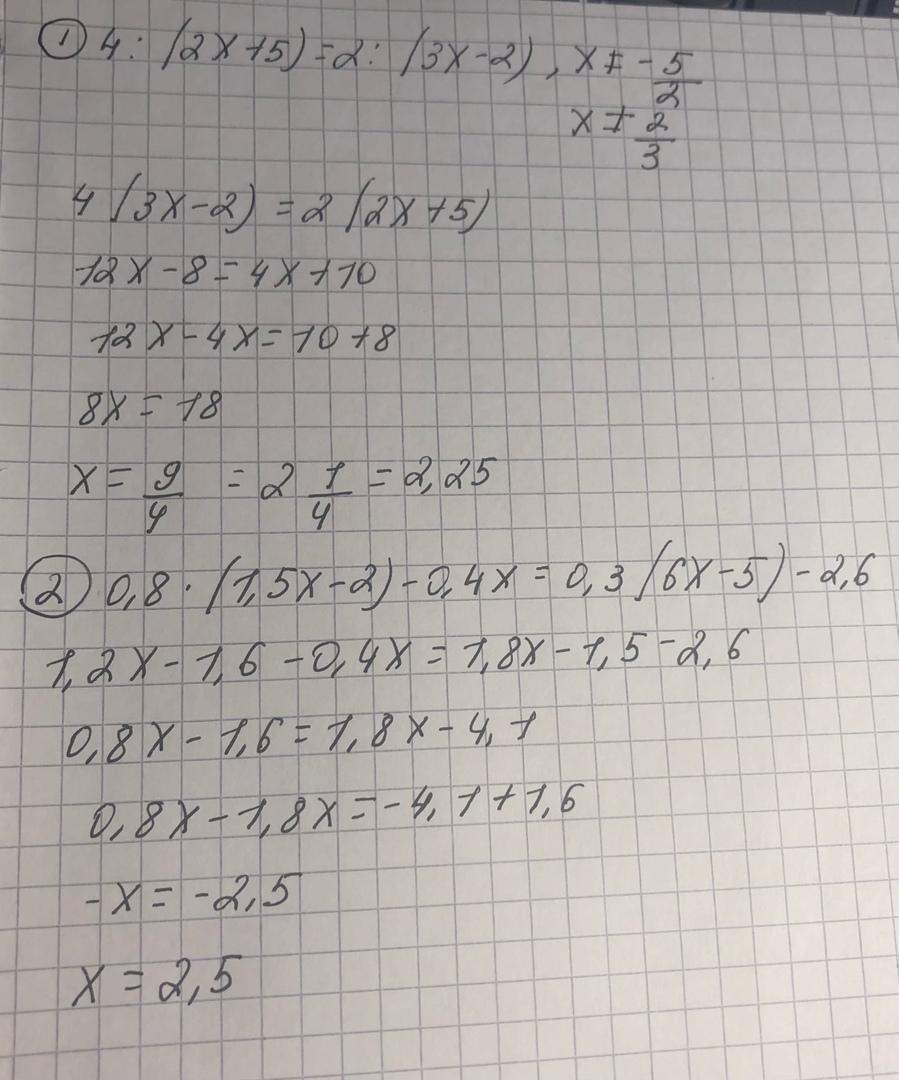 ① 4 : (2x+5) = 2 : (3x-2), x ≠ -5/2
x ≠ 2/3
4(3x-2) = 2(2x+5)
12x-8 = 4x+10
12x-4x = 10+8
8x = 18
x = 9/4 = 2 1/4 = 2,25
② 0,8 · (1,5x-2) - 0,4x = 0,3(6x-5) - 2,6
1,2x - 1,6 - 0,4x = 1,8x - 1,5 - 2,6
0,8x - 1,6 = 1,8x - 4,1
0,8x - 1,8x = -4,1 + 1,6
-x = -2,5
x = 2,5